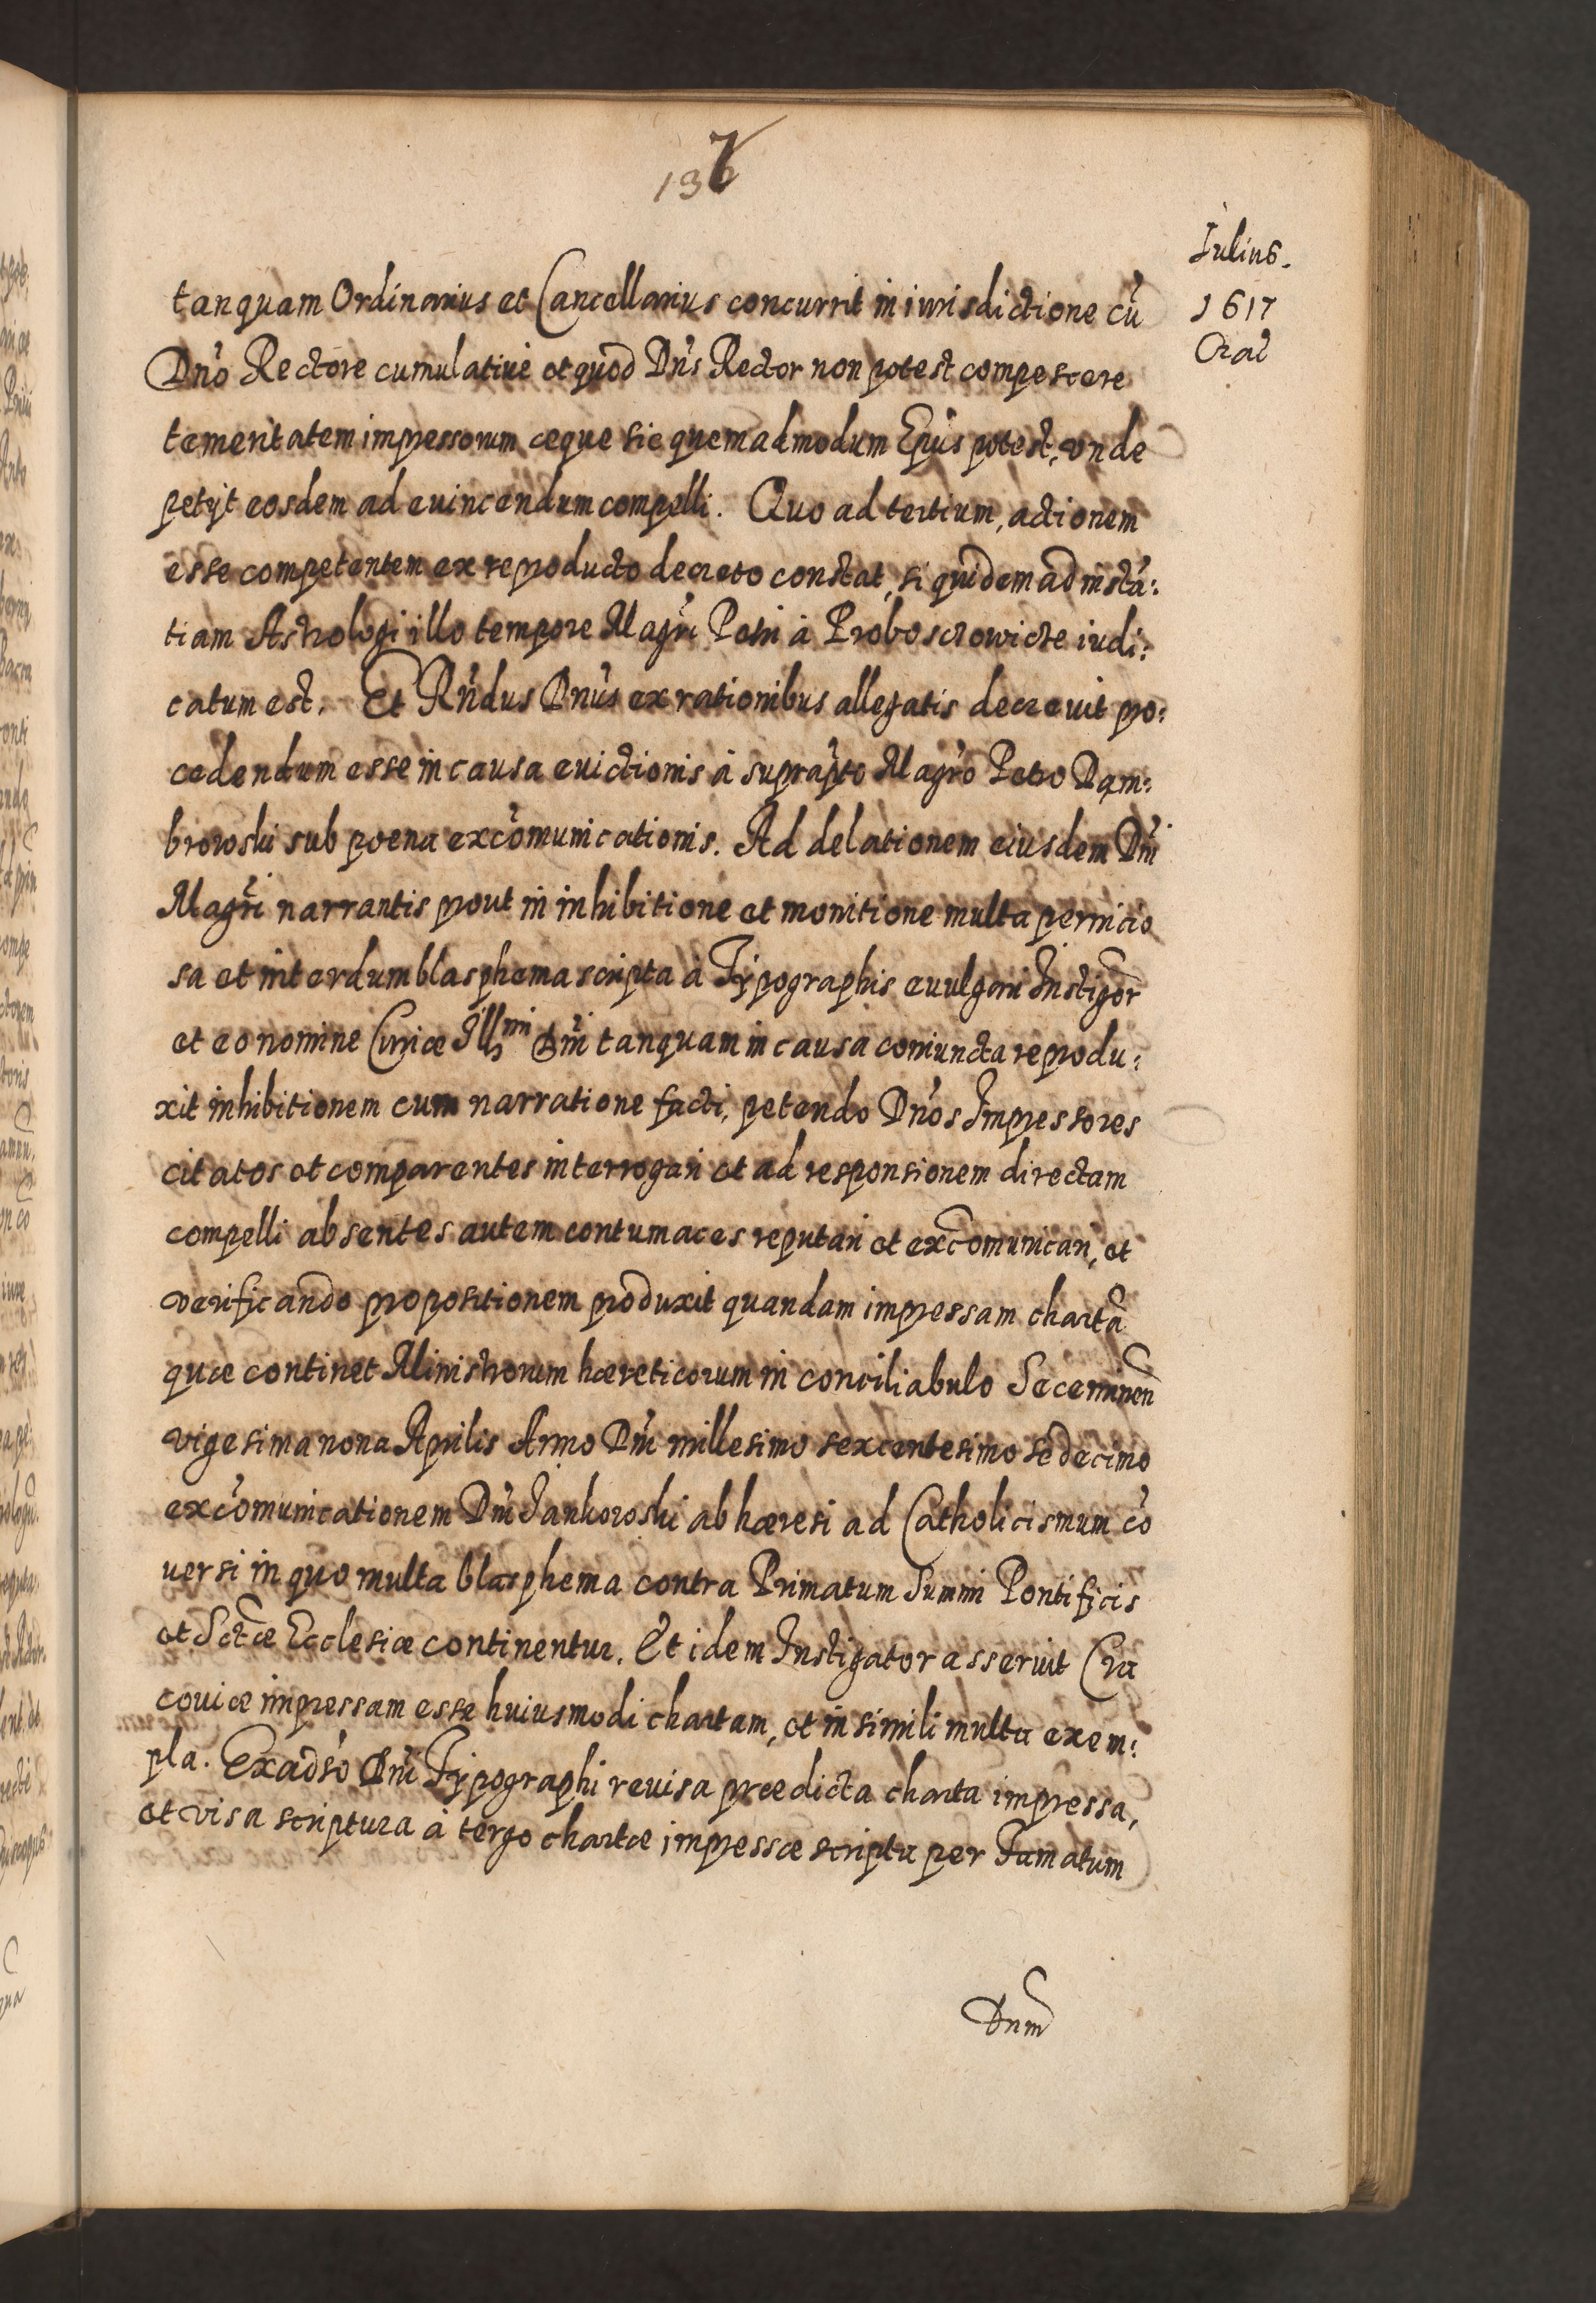 137
Iulius.
1617
Crac̃
tanquam Ordinarius et Cancellarius concurrit in iurisdictione cũ
Dño Rectore cumulatiuè et quod Dñs Rector non potest compescere
temeritatem impressorum æque sic quemadmodum Epũs potest, vnde
petijt eosdem ad euincendum compelli. Quo ad tertium, actionem
esse competentem ex reproducto decreto constat, si quidem ad instã:
tiam Astrologi illo tempore Magr̃i Petri à Proboscrowicze iudi:
catum est. Et Rñdus Dnũs ex rationibus allegatis decreuit pro:
cedendum esse in causa euictionis à suprap̃to Magr̃o Petro Dąm:
browski sub poena excõmunicationis. Ad delationem eiusdem Dñi
Magr̃i narrantis prout in inhibitione et monitione multa pernicio
sa et interdum blasphema scripta à Typographis euulgari Instigor̃
et eo nomine Curiæ Illmi Dñi tanquam in causa coniuncta reprodu:
xit inhibitionem cum narratione facti, petendo Dños Impressores
citatos et comparentes interrogari et ad responsionem directam
compelli absentes autem contumaces reputari et excõmunicari, et
verificando propositionem produxit quandam impressam chartã
quæ continet Ministrorum hæreticorum in conciliabulo Seceminẽn
vigesima nona Aprilis Anno Dñi millesimo sexcentesimo sedecimo
excõmunicationem Dñi Jankowski ab hæresi ad Catholicismum cõ
uersi in quo multa blasphema contra Primatum Summi Pontificis
et Sctæ̃ Ecclesiæ continentur. Et idem Instigator asseruit Cra
couiæ impressam esse huiusmodi chartam, et in simili multa exem:
pla. Ex adũso Dñi Typographi reuisa prædicta charta impressa,
et visa scriptura à tergo chartæ impressæ scripta per Famatum
Dnm̃